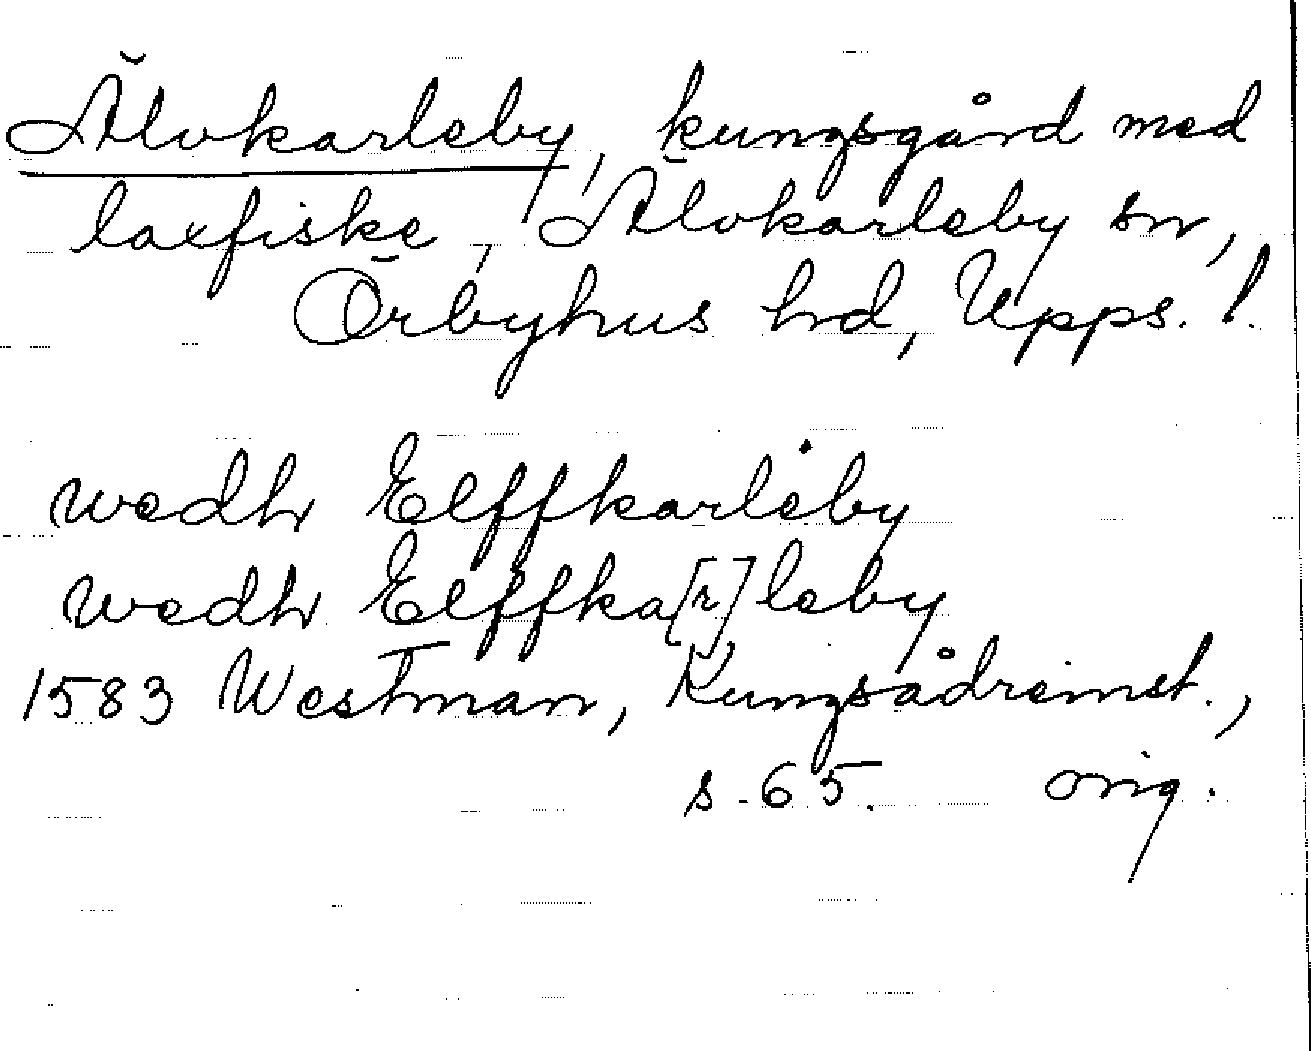 Älvkarleby, kungsgård med
laxfiske, Älvkarleby sn,
Örbyhus hd, Upps. l.
wedh Elffkarleby
wedh Elffka[r]leby
1583 Westman, Kungsådreinst.,
s. 65. orig.